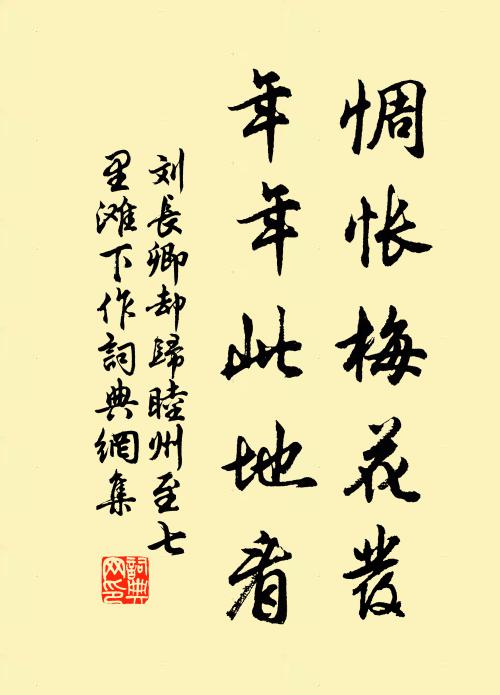 惆怅梅花發
年年此地看
刘長卿却歸睦州至七
里滩下作詞典網集
詞典
网印